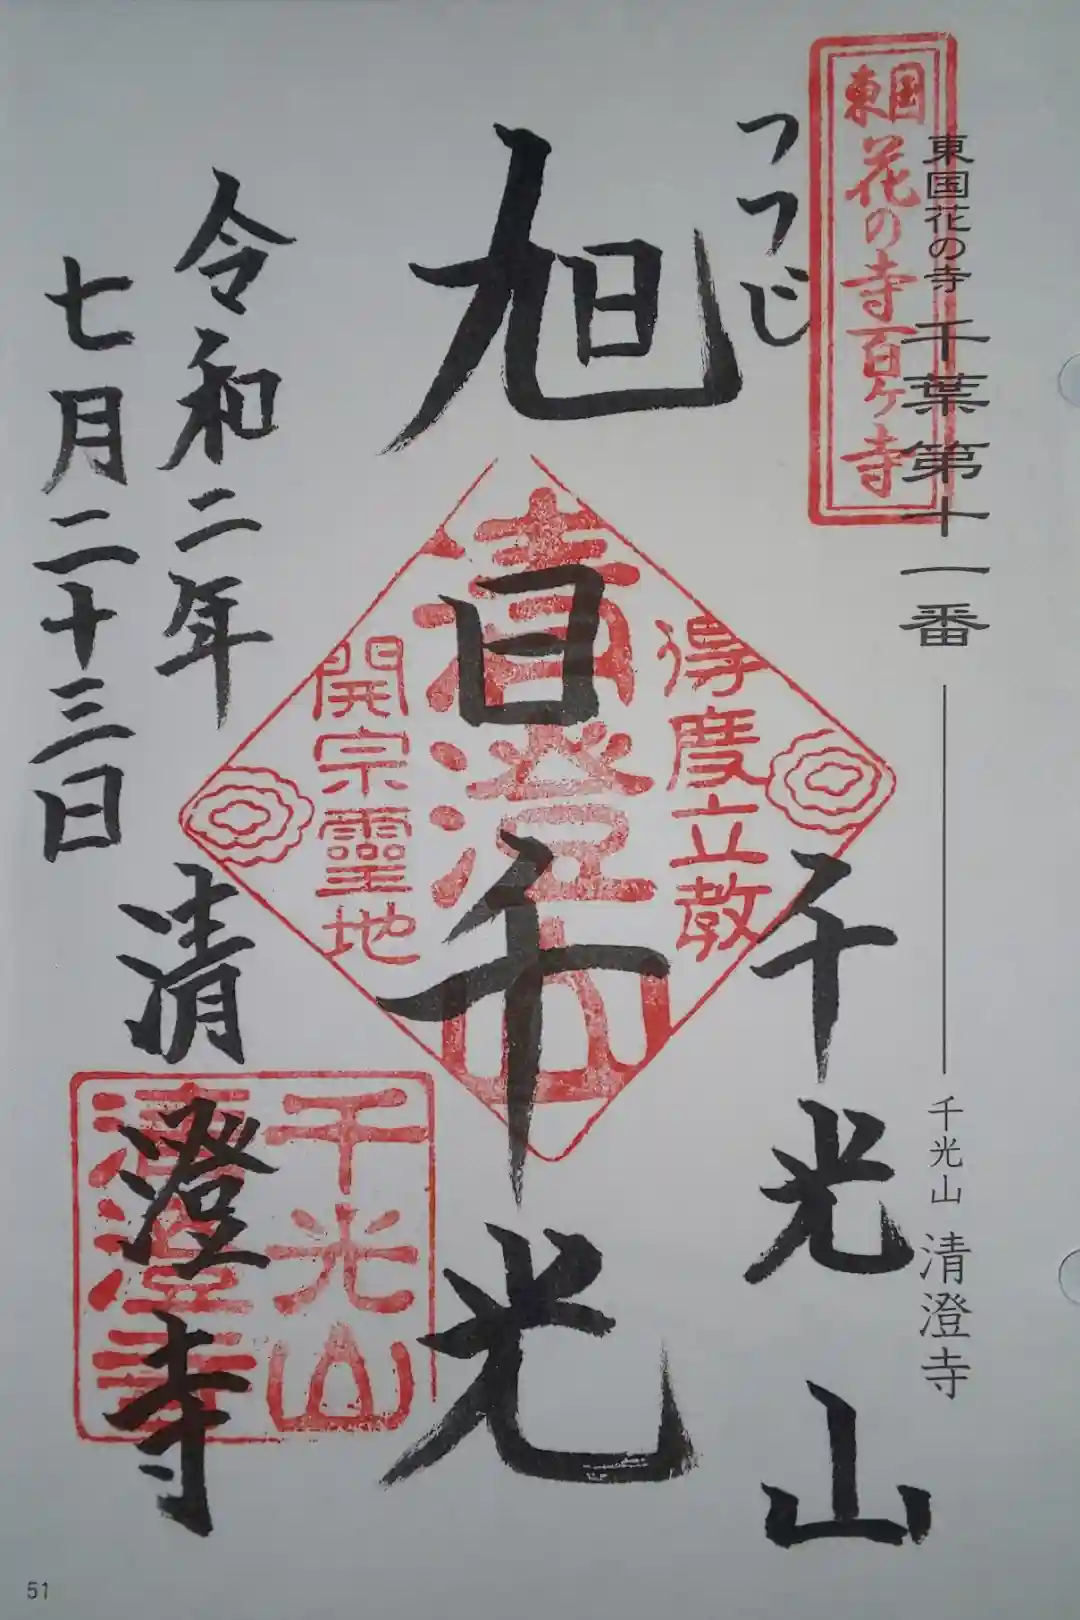 東国花の寺 千葉第十一番
千光山 清澄寺
東国
花の寺百ヶ寺
つつじ
千光山
得度立教
清澄山
開宗靈地
旭日千光
千光山
清澄寺
令和二年
七月二十三日
清澄寺
51